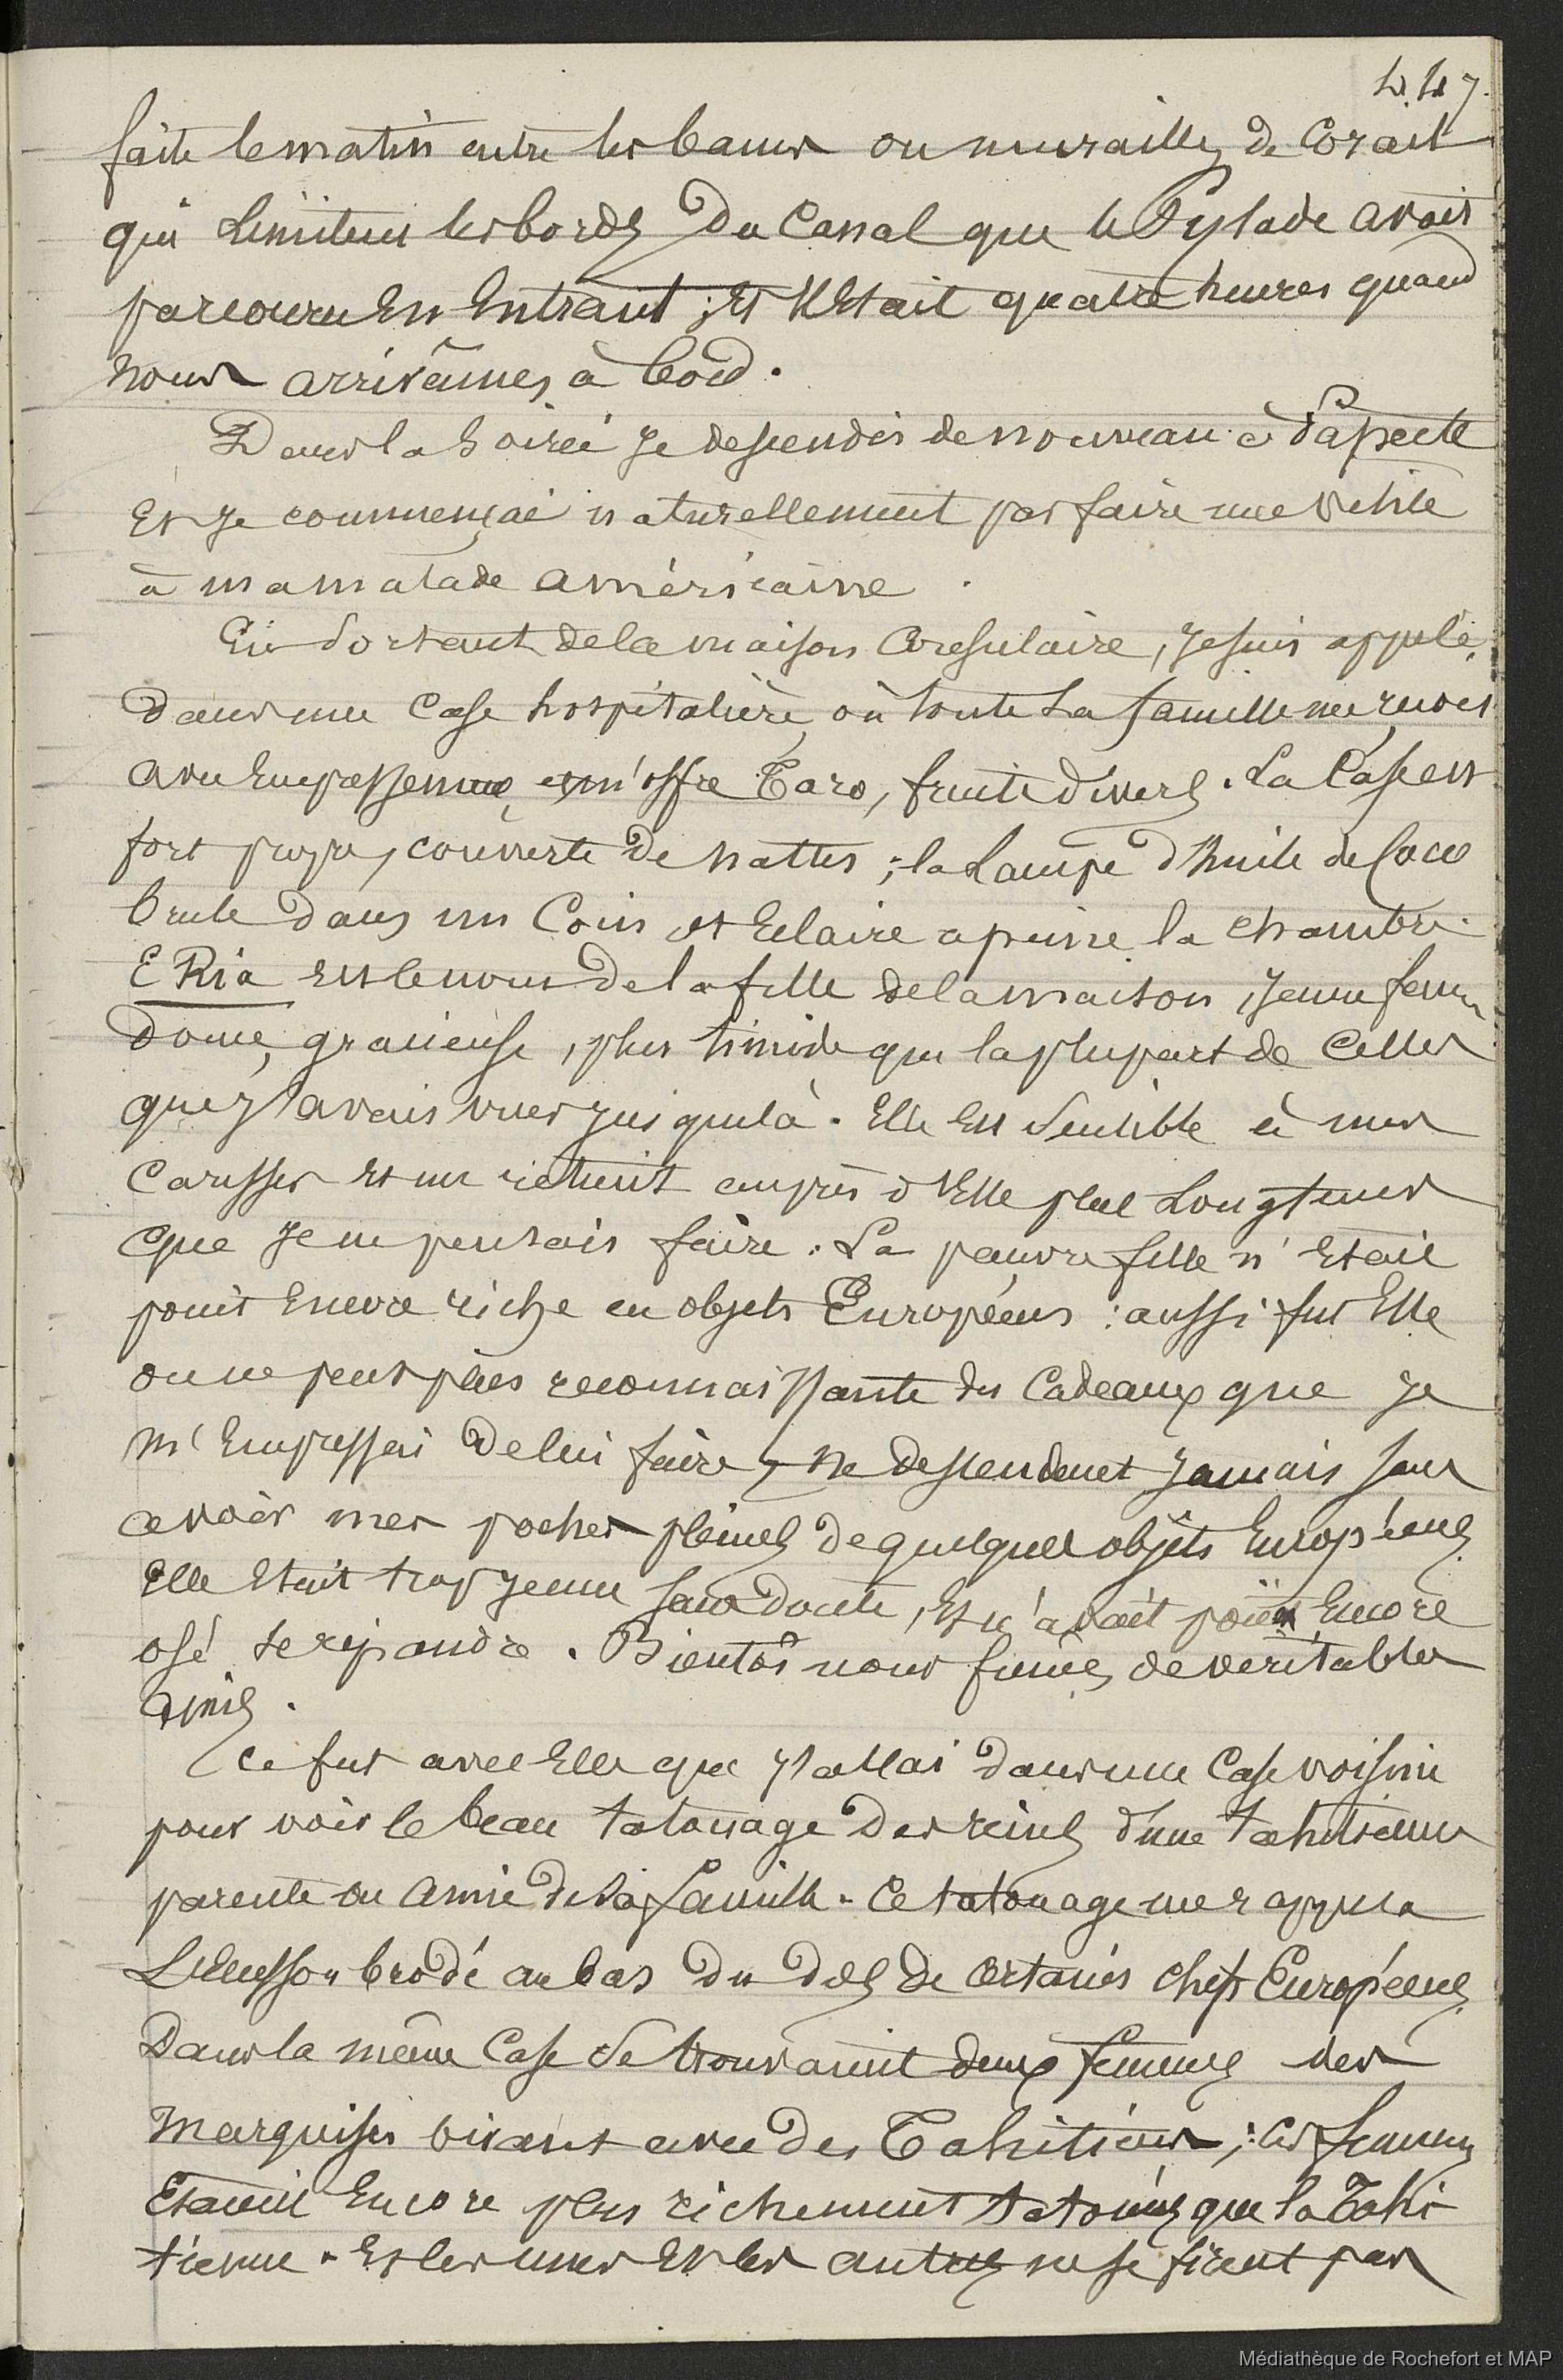 447.
faite le matin entre les bancs ou murailles de Corail
qui limitent les bords du Canal que le Pylade avait
parcouru En Entrant ; Et il Etait quatre heures quand
nous arrivâmes à bord.
Dans la soirée Je descendis de nouveau à Papeete
Et Je commençai naturellement par faire une visite
à ma malade américaine.
En sortant de la maison Consulaire, Je suis appelé
dans une Case hospitalière, où toute la famille me reçoit
avec Empressement, et m'offre Taro, fruits divers. La Case est
fort propre, couverte de nattes ; la Lampe d'huile de Coco
brule dans un Coin et Eclaire a peine la chambre.
E Ria est le nom de la fille de la maison, Jeune femme
douce, gracieuse, plus timide que la plupart de Celles
que J'avais vues Jusque là. Elle Est sensible à mes
Caresses Et me retient auprès d'Elle plus Longtems
que Je ne pensais faire. La pauvre fille n'Etait
point Encore riche en objets Européens : aussi fut Elle
on ne peut plus reconnaissante des Cadeaux que Je
m'Empressai de lui faire, ne descendant Jamais sans
avoir mes poches pleines de quelques objets Européens
Elle Etait trop Jeune sans doute, Et n'avait point Encore
osé se répandre. Bientôt nous fumes de véritables
amis.
Ce fut avec Elle que J'allai dans une Case voisine
pour voir le beau tatouage des reins d'une tahitienne
parente ou amie de la famille. Ce tatouage me rappela
L'Ecusson brodé au bas du dos de certains chefs Européens
Dans la même Case se trouvaient deux femmes des
Marquises vivant avec des Tahitiens ; Ces femmes
Etaient Encore plus richement tatouées que la Tahi
tienne. Et les unes Et les autres ne se firent pas
Médiathèque de Rochefort et MAP